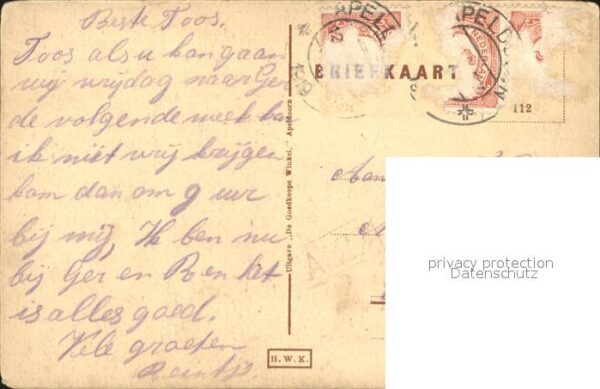 Beste Toos.
Toos als u kan gaan
wij vrijdag naar Ger
de volgende week kan
ik niet vrij krijgen
kom dan om 9 uur
bij mij, Ik ben nu
bij Ger en R en het
is alles goed.
Vele groeten
APELD
APELDOORN
NEDERLAND
BRIEFKAART
112
Aan
Uitgave „De Goedkoope Winkel," Apeldoorn
H.W.K.
privacy protection
Datenschutz